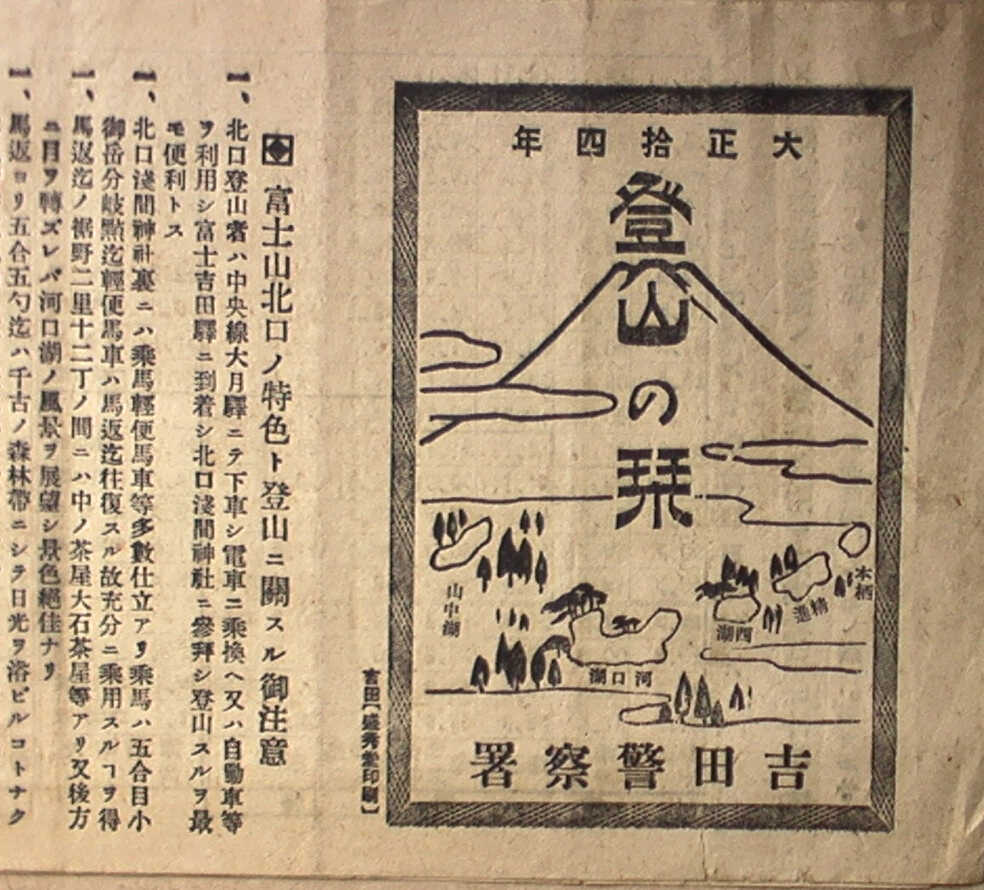 大正拾四年
登山の栞
本栖
精進
西湖
河口湖
山中湖
吉田警察署
吉田「盛秀堂印刷」
富士山北口ノ特色ト登山ニ關スル御注意
一、北口登山者ハ中央線大月驛ニテ下車シ電車ニ乘換ヘ又ハ自動車等
ヲ利用シ富士吉田驛ニ到着シ北口淺間神社ニ參拜シ登山スルヲ最
モ便利トス
一、北口淺間神社裏ニハ乘馬輕便馬車等多數仕立アリ乘馬ハ五合目小
御岳分岐點迄輕便馬車ハ馬返迄往復スル故充分ニ乘用スルヿヲ得
一、馬返迄ノ裾野二里十二丁ノ間ニハ中ノ茶屋大石茶屋等アリ又後方
ニ目ヲ轉ズレバ河口湖ノ風景ヲ展望シ景色絕佳ナリ
一、馬返ヨリ五合五勺迄ハ千古ノ森林帶ニシテ日光ヲ浴ビルコトナク